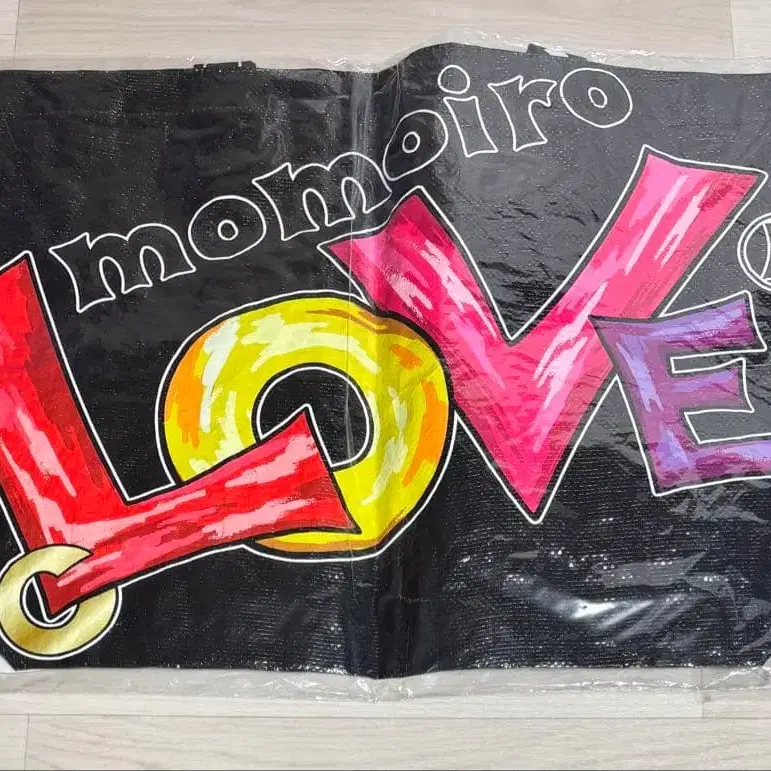 momoiro
LOVE